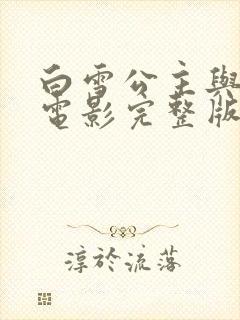 白雪公主與
電影完整版
淳於流落